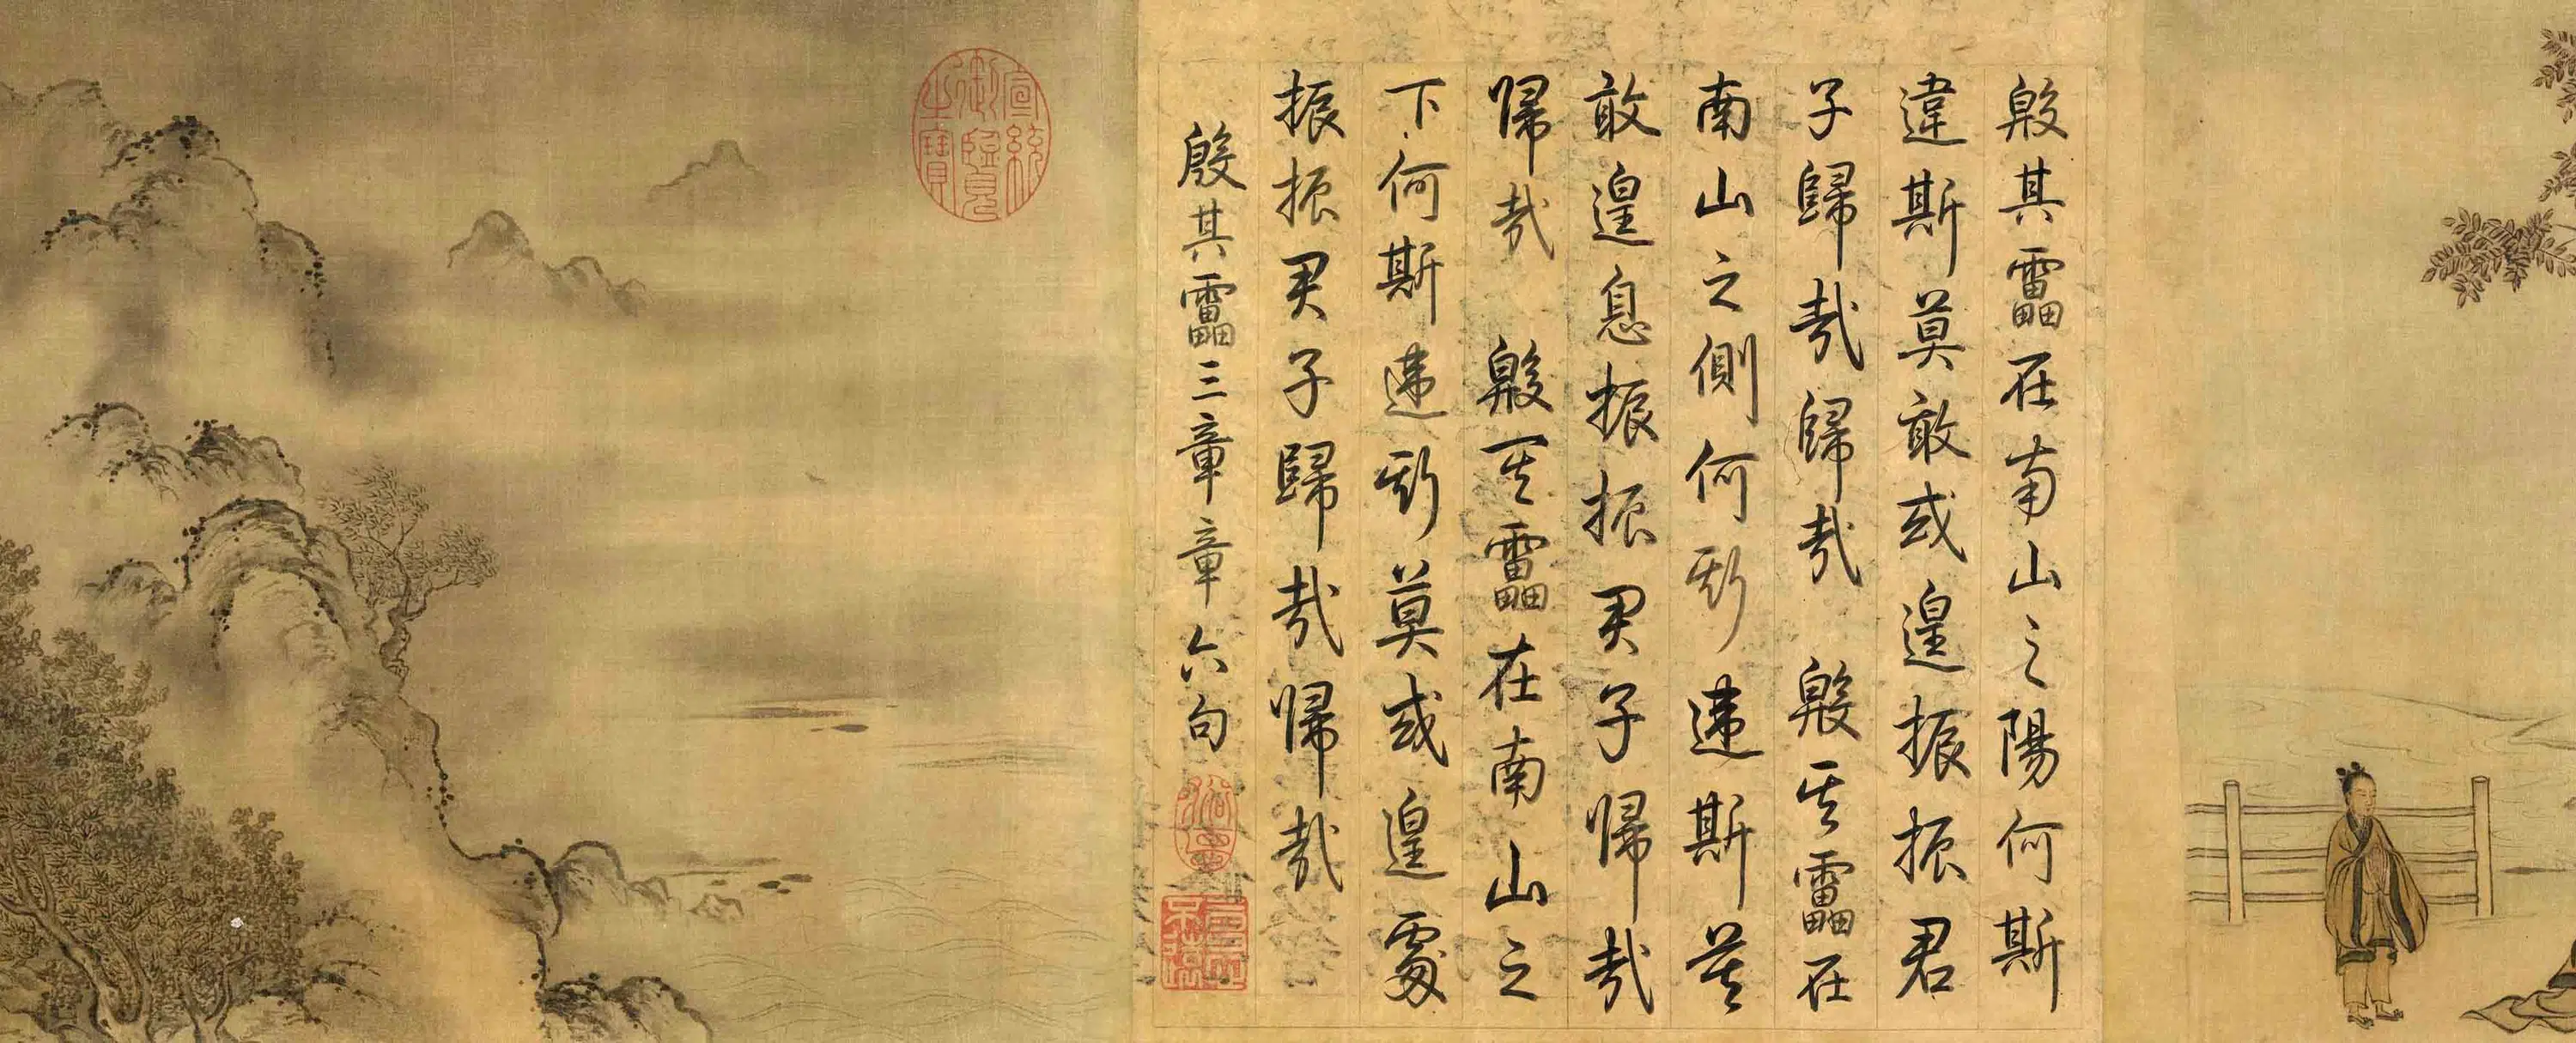 殷其靁在南山之陽何斯
違斯莫敢或遑振振君
子歸哉歸哉 殷其靁在
南山之側何斯違斯莫
敢遑息振振君子歸哉
歸哉 殷其靁在南山之
下何斯違斯莫或遑處
振振君子歸哉歸哉
殷其靁三章章六句
宣統御覽之寶